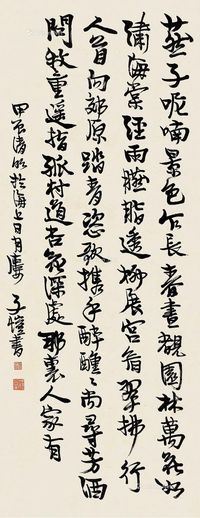 燕子呢喃景色乍長春晝覩園林萬花如
繡海棠經雨臙脂透柳展宮眉翠拂行
人首向郊原踏青恣歌攜手醉醺〻尚尋芳酒
問牧童遙指孤村道杏花深處那裏人家有
甲辰清明於海上日月樓
子愷書